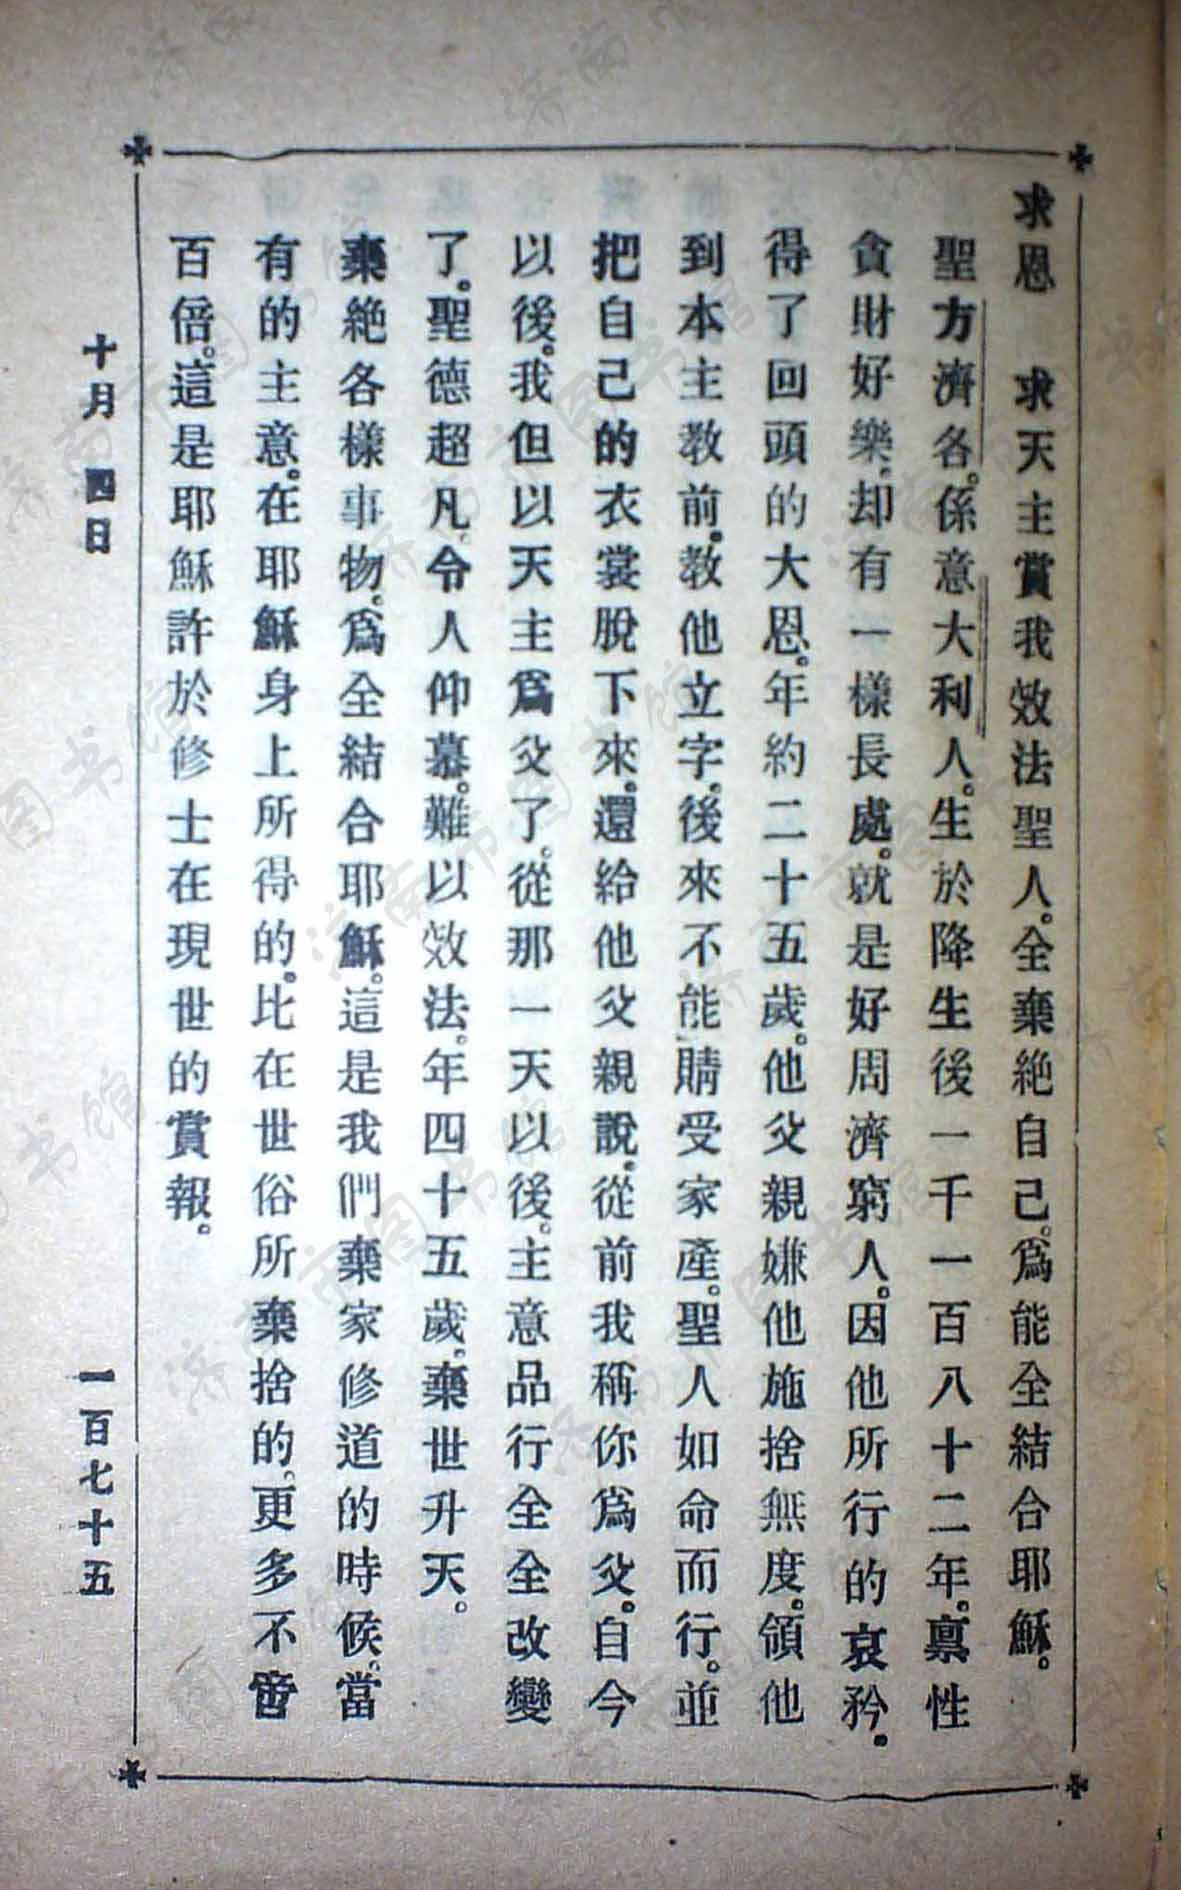 求恩　求天主賞我效法聖人。全棄絶自己。爲能全結合耶穌。
聖方濟各。係意大利人。生於降生後一千一百八十二年。禀性
貪財好樂。却有一樣長處。就是好周濟窮人。因他所行的哀矜。
得了回頭的大恩。年約二十五歲。他父親嫌他施捨無度。領他
到本主教前。教他立字。後來不能䝼受家產。聖人如命而行。並
把自己的衣裳脫下來。還給他父親說。從前我稱你爲父。自今
以後。我但以天主爲父了。從那一天以後。主意品行全全改變
了。聖德超凡。令人仰慕。難以效法。年四十五歲。棄世升天。
棄絶各樣事物。爲全結合耶穌。這是我們棄家修道的時候。當
有的主意。在耶穌身上所得的。比在世俗所棄捨的。更多不啻
百倍。這是耶穌許於修士在現世的賞報。
十月　四日
一百七十五
济南市图书馆